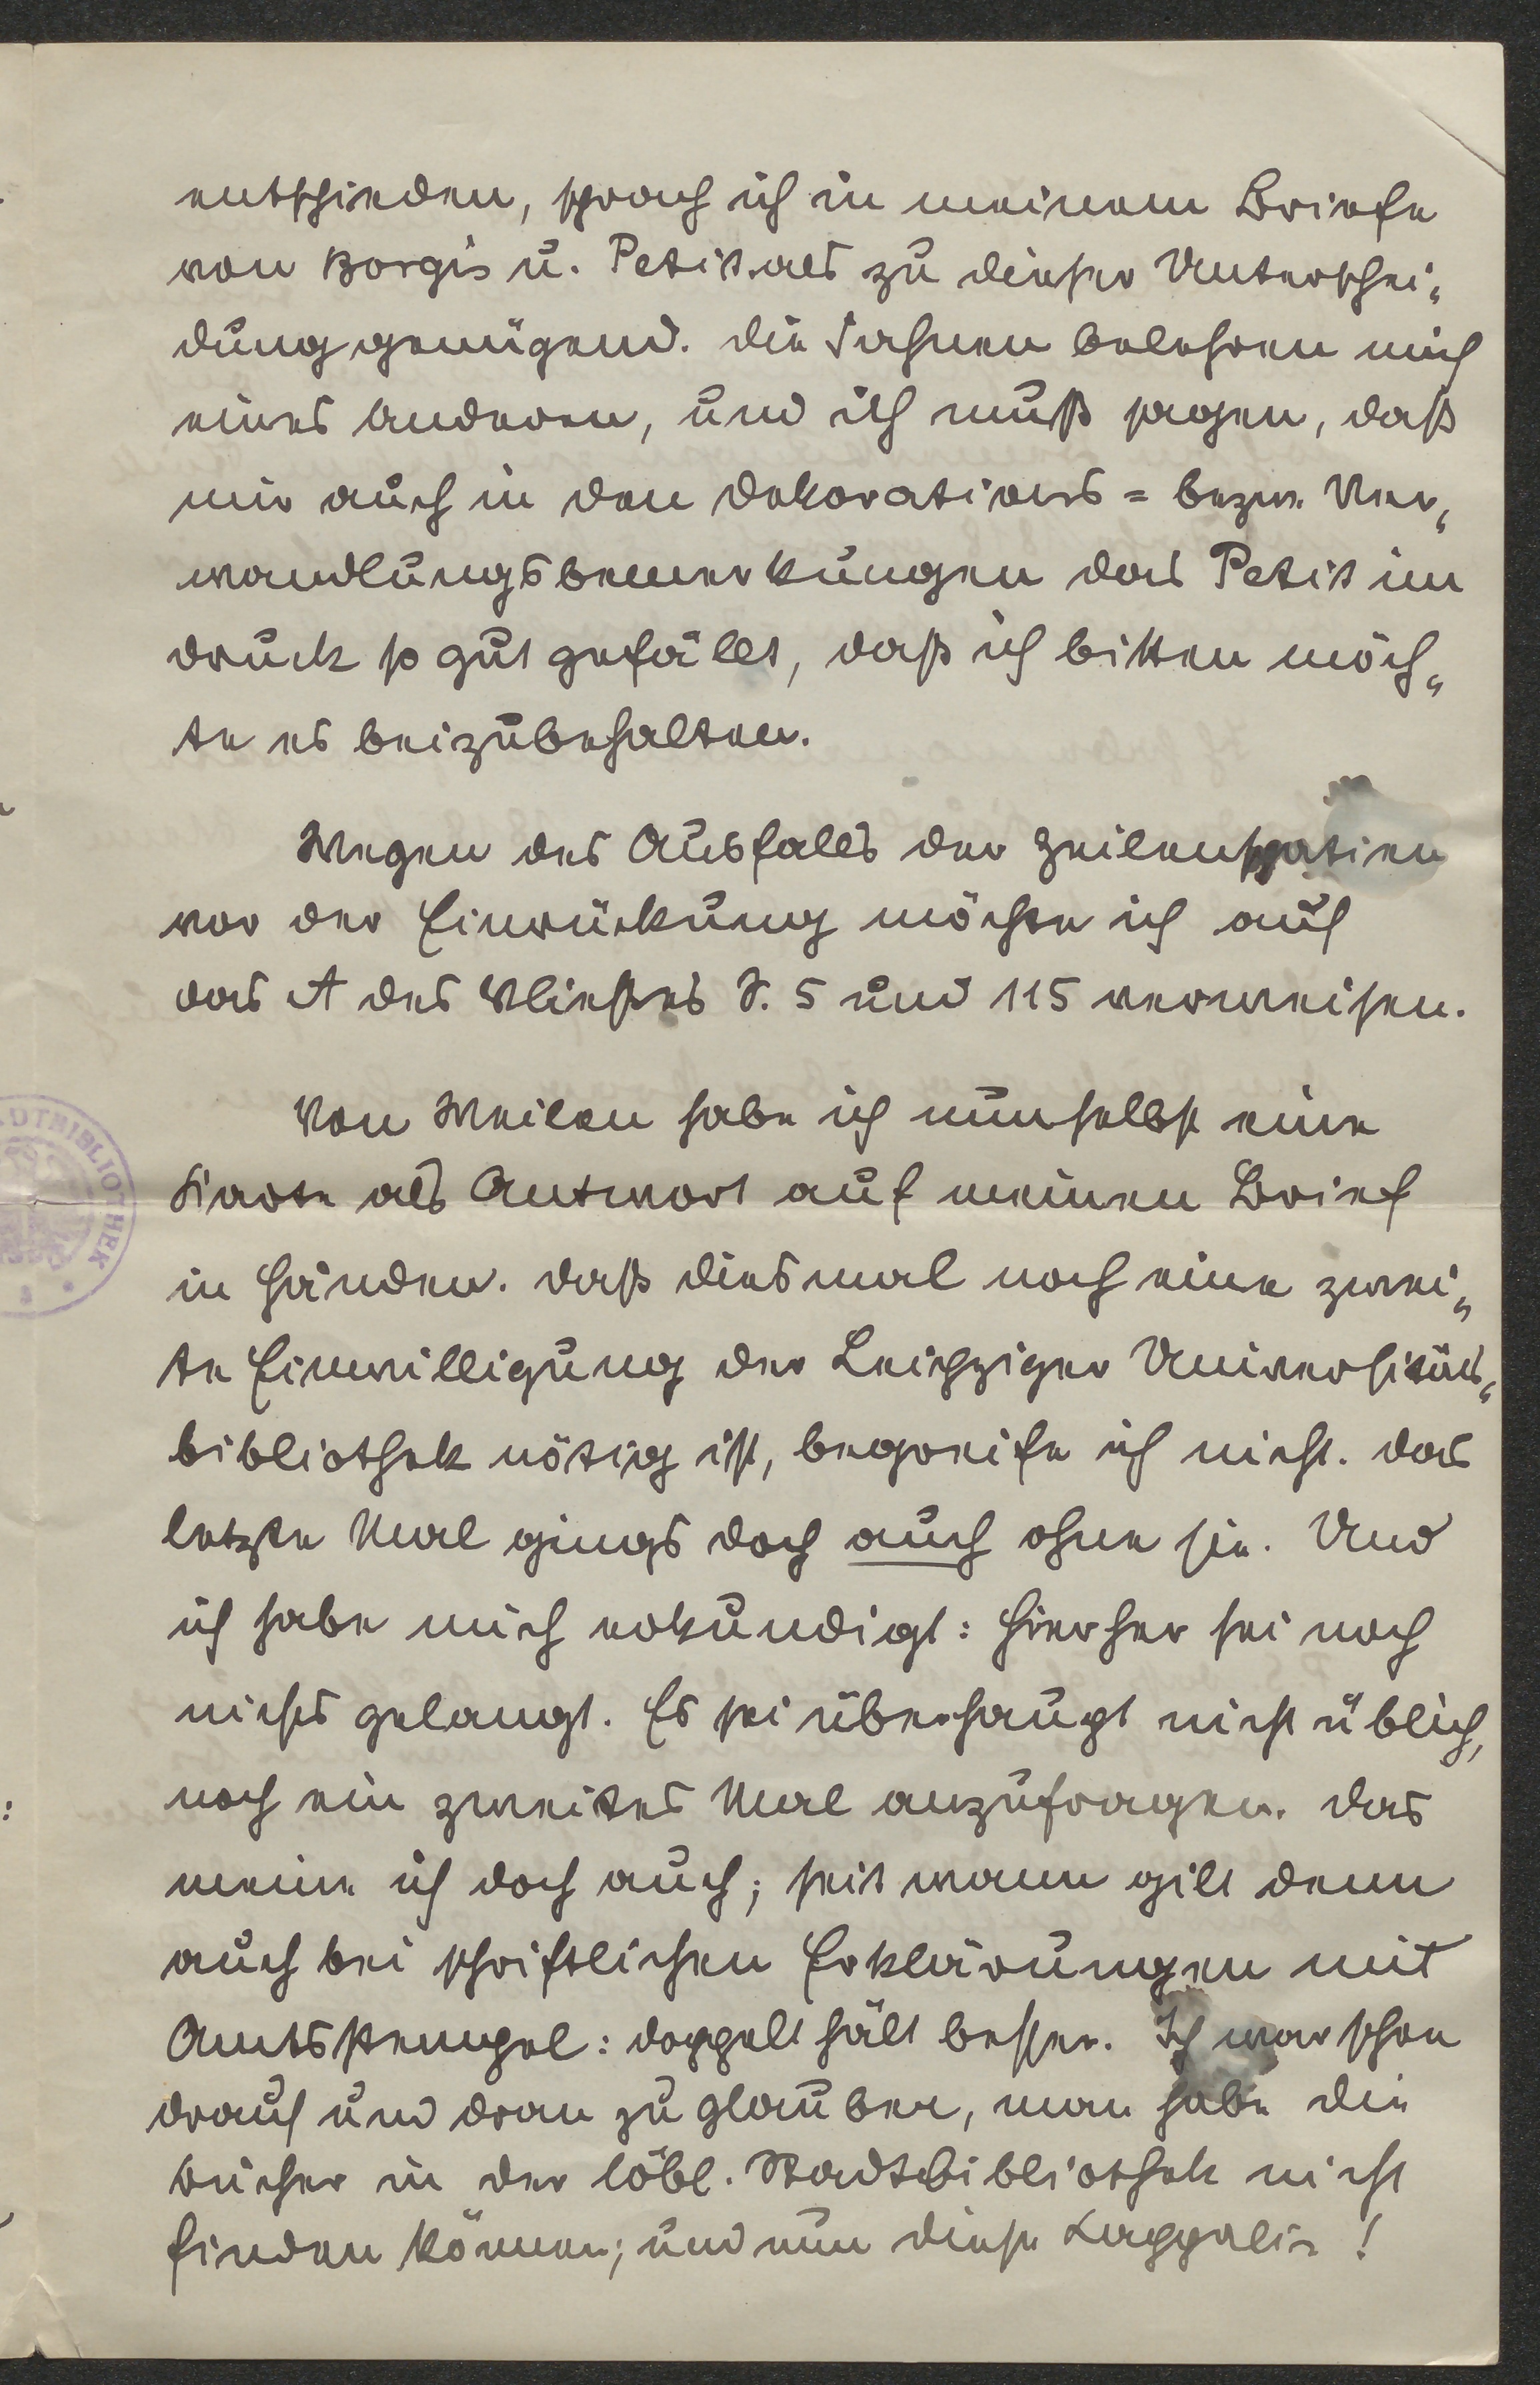 entschieden, sprach ich in meinem Briefe
von Borgis u. Petit als zu dieser Unterschei„
dung genügend. Die Fahnen belehren mich
eines Anderen, und ich muß sagen, daß
mir auch in den Dekorations= bezw. Ver„
wandlungsbemerkungen das Petit im
Druck so gut gefällt, daß ich bitten möch„
te es beizubehalten.
Wegen des Ausfalls der Zeilenspatien
vor der Einrückung möchte ich auf
das A des Vließes S. 5 und 115 verweisen.
Von Weilen habe ich nun selbst eine
Karte als Antwort auf meinen Brief
in Händen. Daß diesmal noch eine zwei„
te Einwilligung der Leipziger Universitäts„
bibliothek nötig ist, begreife ich nicht. Das
letzte Mal gings doch auch ohne sie. Und
ich habe mich erkundigt: Hierher sei noch
nichts gelangt. Es sei überhaupt nicht üblich,
noch ein zweites Mal anzufragen. Das
meine ich doch auch; seit wann gilt denn
auch bei schriftlichen Erklärungen mit
Amtsstempel: doppelt hält besser. Ich war schon
drauf und dran zu glauben, man habe die
Bücher in der löbl. Stadtbibliothek nicht
finden können; und nun diese Lappalie!
STADTBIBLIOTHEK